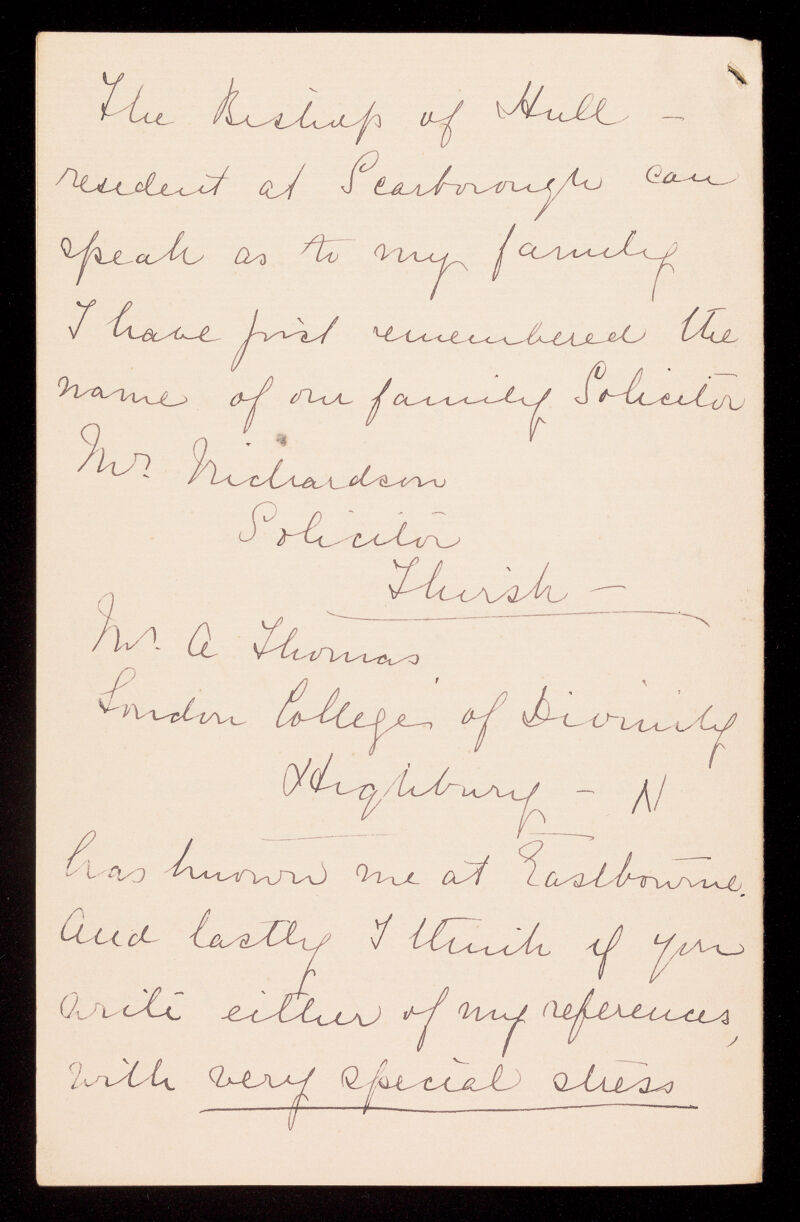 The Bishop of Hull –
resident at Scarborough can
speak as to my family
I have just remembered the
name of our family Solicitor
Mr. Richardson
Solicitor
Thirsk –
Mr. A Thomas
London College of Divinity
Highbury – N
has known me at Eastbourne.
And lastly I think if you
write either of my references,
with very special stress